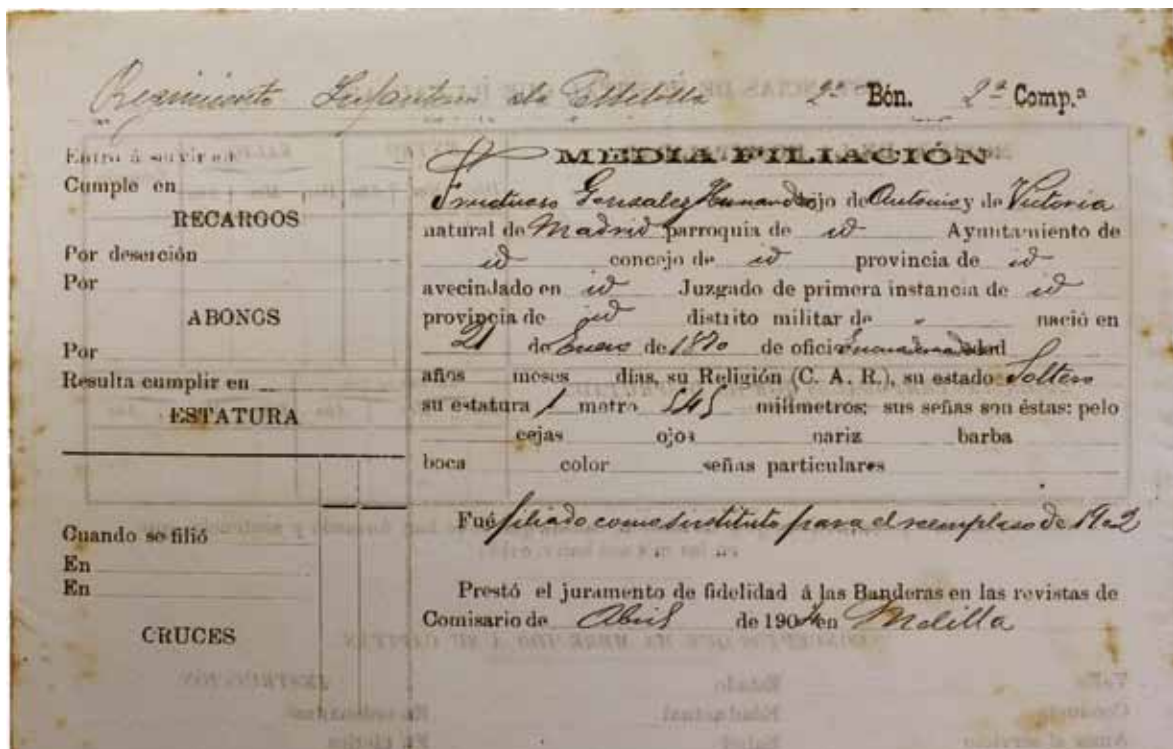 Regimiento Infantería de Melilla 2º Bón. 2ª Comp.ª
Entró á servir en
Cumple en
RECARGOS
Por deserción
Por
ABONOS
Por
Resulta cumplir en
ESTATURA
Cuando se filió
En
En
CRUCES
MEDIA FILIACIÓN
Fructuoso Gonzalez Hernandez hijo de Antonio y de Victoria
natural de Madrid parroquia de id Ayuntamiento de
id concejo de id provincia de id
avecindado en id Juzgado de primera instancia de id
provincia de id distrito militar de " nació en
21 de Enero de 1870 de oficio edad
años meses días, su Religión (C. A. R.), su estado Soltero
su estatura 1 metro 545 milímetros; sus señas son éstas: pelo
cejas ojos nariz barba
boca color señas particulares
Fué filiado como sustituto para el reemplaso de 1902
Prestó el juramento de fidelidad á las Banderas en las revistas de
Comisario de Abril de 1904 en Melilla